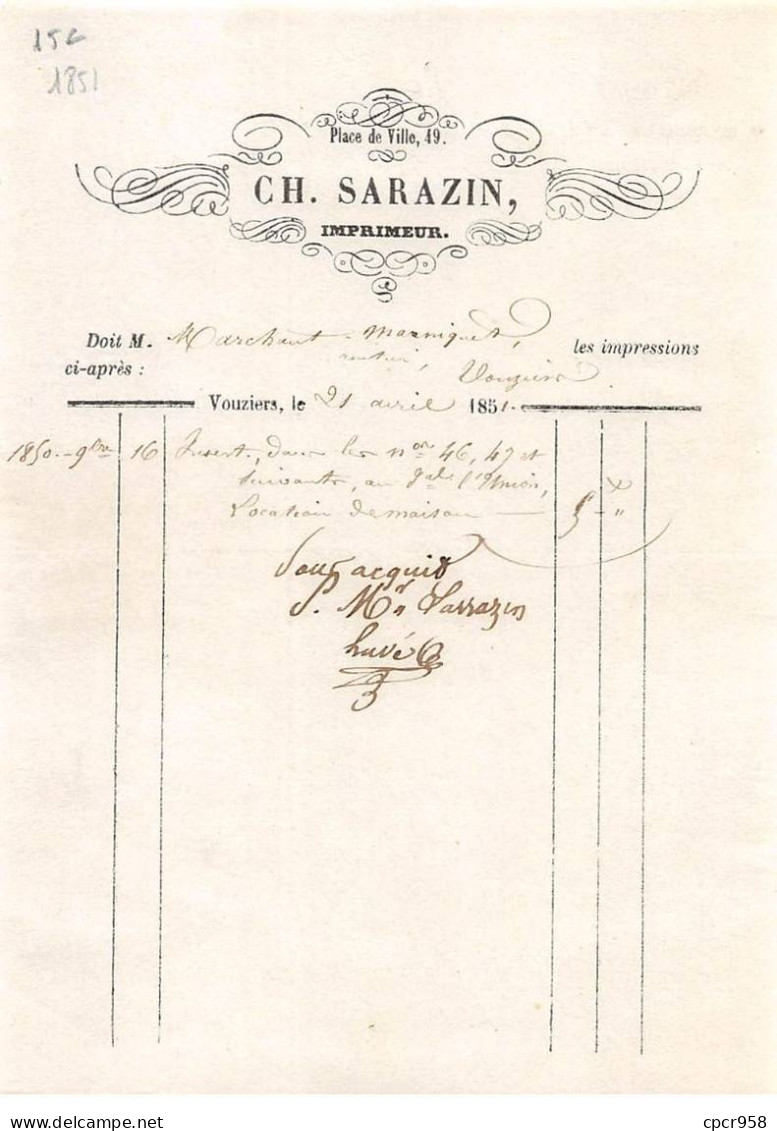 15€
1851
Place de Ville, 49.
CH. SARAZIN,
IMPRIMEUR.
Doit M. Marchant-Mazniquet, les impressions
ci-après : rentier, Vouziers
Vouziers, le 21 avril 1851.
1850.-9bre 16 Insert, dans les nos 46, 47 et
suivants, au Jal l'Union,
Location de maison — 5 - "
Pour acquit
P. Mr Sarrazin
huvé
cpcr958